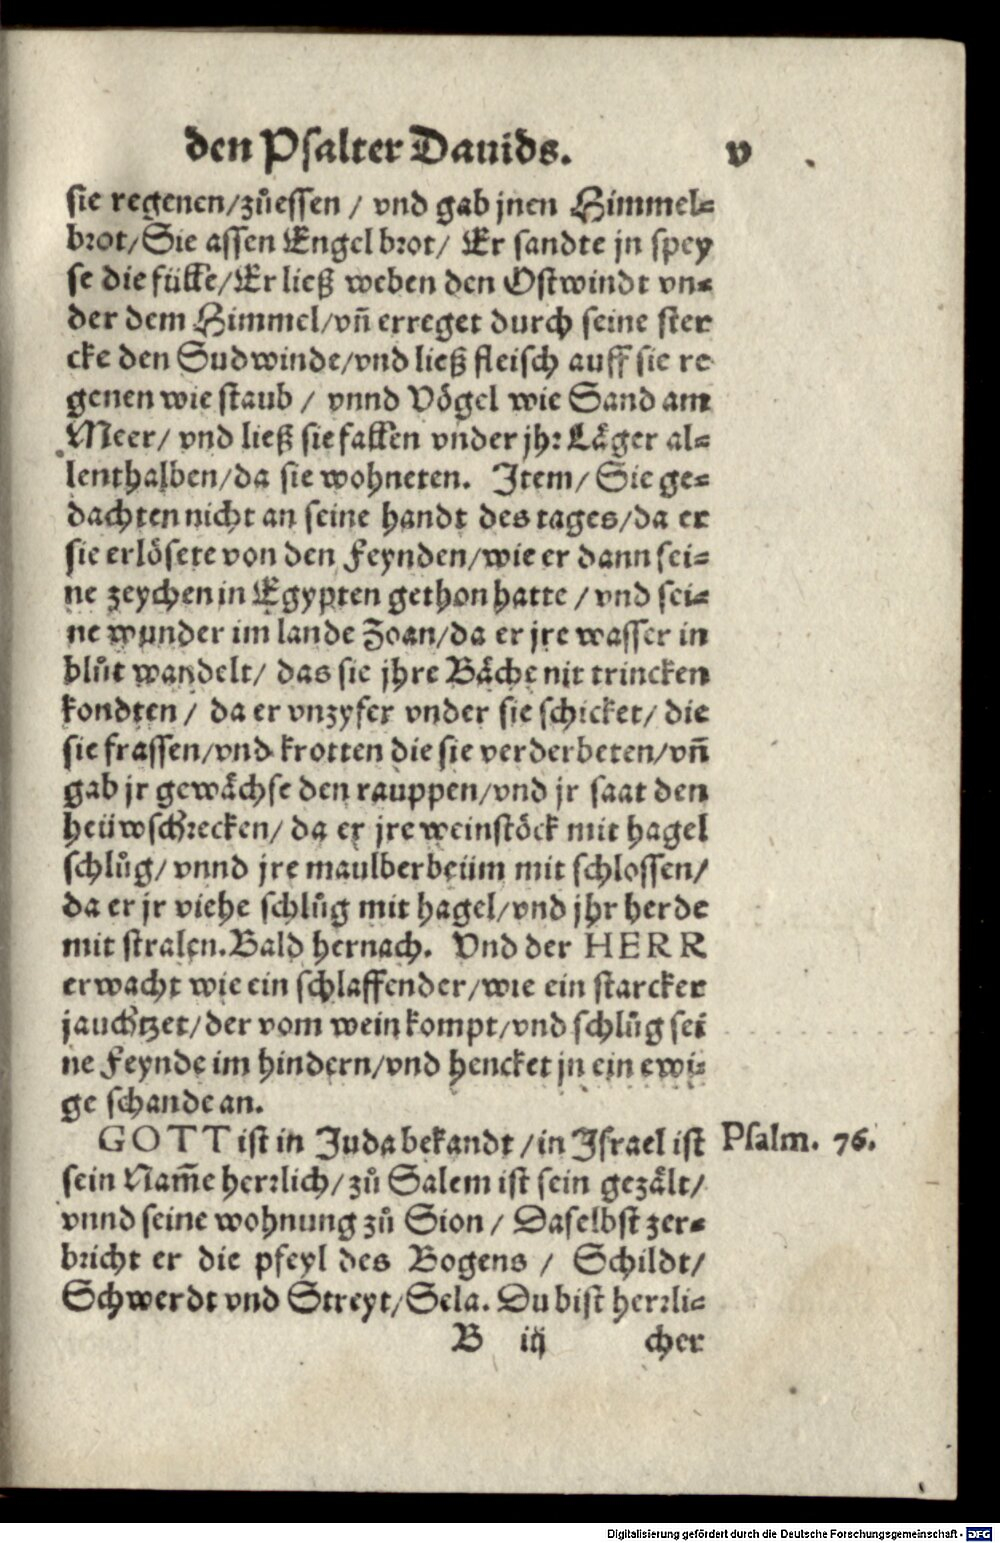 den Psalter Dauids. v
sie regenen/zůessen / vnd gab jnen Himmel⸗
brot/Sie assen Engel brot/ Er sandte jn spey
se die fülle/Er ließ weben den Ostwindt vn⸗
der dem Himmel/vñ erreget durch seine ster
cke den Sudwinde/vnd ließ fleisch auff sie re
genen wie staub / vnnd Vögel wie Sand am
Meer/ vnd ließ sie fallen vnder jhr Läger al⸗
lenthalben/da sie wohneten. Item/ Sie ge⸗
dachten nicht an seine handt des tages/da er
sie erlösete von den Feynden/wie er dann sei⸗
ne zeychen in Egypten gethon hatte / vnd sei⸗
ne wunder im lande Zoan/da er jre wasser in
blůt wandelt/ das sie jhre Bäche nit trincken
kondten / da er vnzyfer vnder sie schicket/ die
sie frassen/vnd krotten die sie verderbeten/vñ
gab jr gewächse den rauppen/vnd jr saat den
heüwschrecken/ da er jre weinstöck mit hagel
schlůg/ vnnd jre maulberbeüm mit schlossen/
da er jr viehe schlůg mit hagel/vnd jhr herde
mit stralen.Bald hernach. Vnd der HERR
erwacht wie ein schlaffender/wie ein starcker
jauchtzet/der vom wein kompt/vnd schlůg sei
ne Feynde im hindern/vnd hencket jn ein ewi⸗
ge schande an.
GOTT ist in Juda bekandt /in Israel ist Psalm. 76.
sein Nam̃e herrlich/zů Salem ist sein gezält/
vnnd seine wohnung zů Sion / Daselbst zer⸗
bricht er die pfeyl des Bogens / Schildt/
Schwerdt vnd Streyt/Sela. Du bist herrli⸗
B iij cher
Digitalisierung gefördert durch die Deutsche Forschungsgemeinschaft - DFG